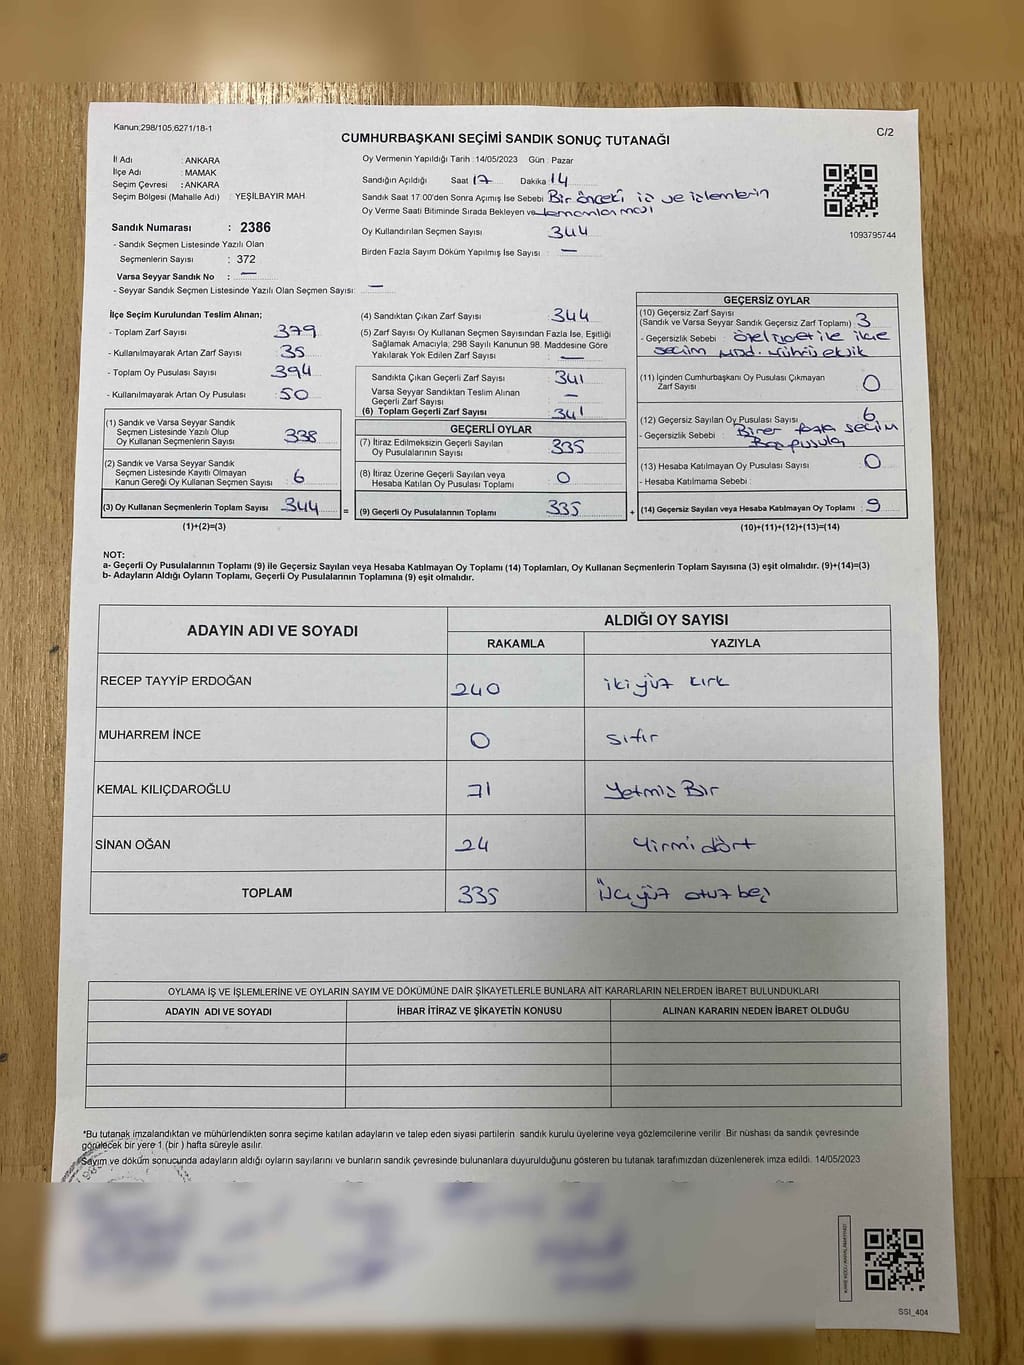 Kanun;298/105;6271/18-1
C/2
CUMHURBAŞKANI SEÇİMİ SANDIK SONUÇ TUTANAĞI
İl Adı : ANKARA
İlçe Adı : MAMAK
Seçim Çevresi : ANKARA
Seçim Bölgesi (Mahalle Adı) : YEŞİLBAYIR MAH
Sandık Numarası : 2386
- Sandık Seçmen Listesinde Yazılı Olan
Seçmenlerin Sayısı : 372
Varsa Seyyar Sandık No : —
- Seyyar Sandık Seçmen Listesinde Yazılı Olan Seçmen Sayısı: —
Oy Vermenin Yapıldığı Tarih : 14/05/2023 Gün : Pazar
Sandığın Açıldığı Saat 17 Dakika 14
Sandık Saat 17:00'den Sonra Açımış İse Sebebi Bir önceki iş ve işlemlerin
Oy Verme Saati Bitiminde Sırada Bekleyen ve tamamlanması
Oy Kullandırılan Seçmen Sayısı 344
Birden Fazla Sayım Döküm Yapılmış İse Sayısı : —
1093795744
İlçe Seçim Kurulundan Teslim Alınan;
- Toplam Zarf Sayısı 379
- Kullanılmayarak Artan Zarf Sayısı 35
- Toplam Oy Pusulası Sayısı 394
- Kullanılmayarak Artan Oy Pusulası 50
(1) Sandık ve Varsa Seyyar Sandık
Seçmen Listesinde Yazılı Olup
Oy Kullanan Seçmenlerin Sayısı 338
(2) Sandık ve Varsa Seyyar Sandık
Seçmen Listesinde Kayıtlı Olmayan
Kanun Gereği Oy Kullanan Seçmen Sayısı 6
(3) Oy Kullanan Seçmenlerin Toplam Sayısı 344 =
(1)+(2)=(3)
(4) Sandıktan Çıkan Zarf Sayısı 344
(5) Zarf Sayısı Oy Kullanan Seçmen Sayısından Fazla İse, Eşitliği
Sağlamak Amacıyla; 298 Sayılı Kanunun 98. Maddesine Göre
Yakılarak Yok Edilen Zarf Sayısı —
Sandıkta Çıkan Geçerli Zarf Sayısı 341
Varsa Seyyar Sandıktan Teslim Alınan
Geçerli Zarf Sayısı —
(6) Toplam Geçerli Zarf Sayısı 341
GEÇERLİ OYLAR
(7) İtiraz Edilmeksizin Geçerli Sayılan
Oy Pusulalarının Sayısı 335
(8) İtiraz Üzerine Geçerli Sayılan veya
Hesaba Katılan Oy Pusulası Toplamı 0
(9) Geçerli Oy Pusulalarının Toplamı 335 +
GEÇERSİZ OYLAR
(10) Geçersiz Zarf Sayısı
(Sandık ve Varsa Seyyar Sandık Geçersiz Zarf Toplamı) 3
- Geçersizlik Sebebi : ile ilçe
seçim Müd. Mührü eksik
(11) İçinden Cumhurbaşkanı Oy Pusulası Çıkmayan
Zarf Sayısı 0
(12) Geçersiz Sayılan Oy Pusulası Sayısı 6
- Geçersizlik Sebebi : Birden fazla seçim
Boş pusula
(13) Hesaba Katılmayan Oy Pusulası Sayısı 0
- Hesaba Katılmama Sebebi :
(14) Geçersiz Sayılan veya Hesaba Katılmayan Oy Toplamı : 9
(10)+(11)+(12)+(13)=(14)
NOT:
a- Geçerli Oy Pusulalarının Toplamı (9) ile Geçersiz Sayılan veya Hesaba Katılmayan Oy Toplamı (14) Toplamları, Oy Kullanan Seçmenlerin Toplam Sayısına (3) eşit olmalıdır. (9)+(14)=(3)
b- Adayların Aldığı Oyların Toplamı, Geçerli Oy Pusulalarının Toplamına (9) eşit olmalıdır.
ADAYIN ADI VE SOYADI
ALDIĞI OY SAYISI
RAKAMLA YAZIYLA
RECEP TAYYİP ERDOĞAN 240 iki yüz kırk
MUHARREM İNCE 0 sıfır
KEMAL KILIÇDAROĞLU 71 Yetmiş Bir
SİNAN OĞAN 24 Yirmi dört
TOPLAM 335 Üç yüz otuz beş
OYLAMA İŞ VE İŞLEMLERİNE VE OYLARIN SAYIM VE DÖKÜMÜNE DAİR ŞİKAYETLERLE BUNLARA AİT KARARLARIN NELERDEN İBARET BULUNDUKLARI
ADAYIN ADI VE SOYADI İHBAR İTİRAZ VE ŞİKAYETİN KONUSU ALINAN KARARIN NEDEN İBARET OLDUĞU
*Bu tutanak imzalandıktan ve mühürlendikten sonra seçime katılan adayların ve talep eden siyasi partilerin sandık kurulu üyelerine veya gözlemcilerine verilir. Bir nüshası da sandık çevresinde
görülecek bir yere 1 (bir ) hafta süreyle asılır.
Sayım ve döküm sonucunda adayların aldığı oyların sayılarını ve bunların sandık çevresinde bulunanlara duyurulduğunu gösteren bu tutanak tarafımızdan düzenlenerek imza edildi. 14/05/2023
SSI_404